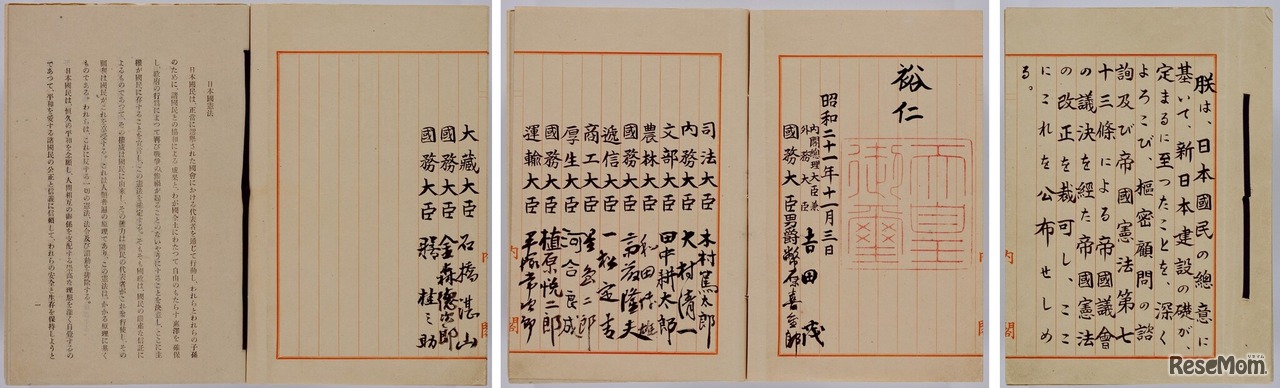 朕は、日本國民の總意に
基いて、新日本建設の礎が、
定まるに至つたことを、深く
よろこび、樞密顧問の諮
詢及び帝國憲法第七
十三條による帝國議會
の議決を經た帝國憲法
の改正を裁可し、ここ
にこれを公布せしめ
る。
内閣
裕仁
天皇御璽
昭和二十一年十一月三日
内閣總理大臣兼
外務大臣 吉田茂
國務大臣男爵幣原喜重郎
司法大臣 木村篤太郎
内務大臣 大村清一
文部大臣 田中耕太郎
農林大臣 和田博雄
國務大臣 斎藤隆夫
遞信大臣 一松定吉
商工大臣 星島二郎
厚生大臣 河合良成
國務大臣 植原悦二郎
運輸大臣 平塚常次郎
内閣
大藏大臣 石橋湛山
國務大臣 金森德次郎
國務大臣 膳桂之助
日本國憲法
日本國民は、正當に選擧された國會における代表者を通じて行動し、われらとわれらの子孫
のために、諸國民との協和による成果と、わが國全土にわたつて自由のもたらす惠澤を確保
し、政府の行爲によつて再び戰爭の慘禍が起ることのないやうにすることを決意し、ここに主
權が國民に存することを宣言し、この憲法を確定する。そもそも國政は、國民の嚴肅な信託に
よるものであつて、その權威は國民に由來し、その權力は國民の代表者がこれを行使し、その
福利は國民がこれを享受する。これは人類普遍の原理であり、この憲法は、かかる原理に基く
ものである。われらは、これに反する一切の憲法、法令及び詔勅を排除する。
日本國民は、恒久の平和を念願し、人間相互の關係を支配する崇高な理想を深く自覺するの
であつて、平和を愛する諸國民の公正と信義に信頼して、われらの安全と生存を保持しようと
一
ReseMom.